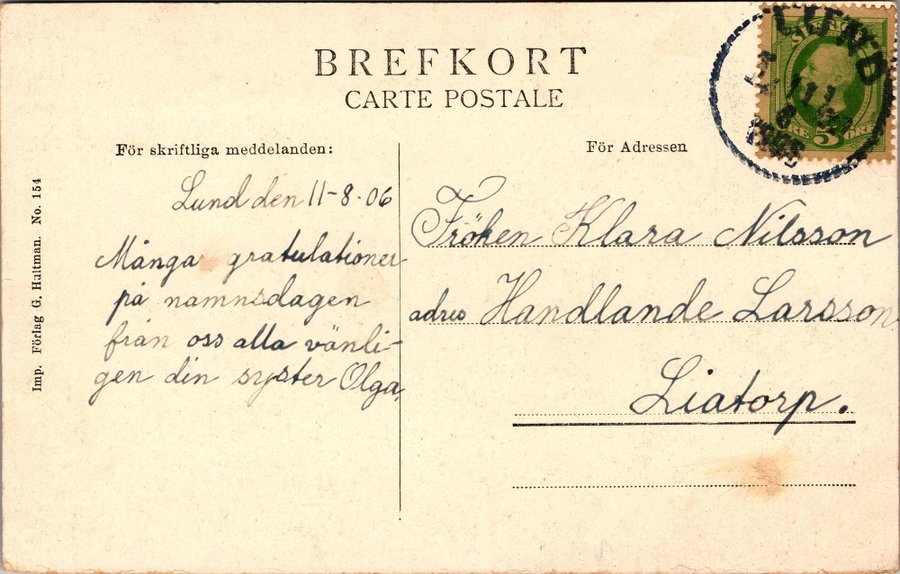 BREFKORT
CARTE POSTALE
För skriftliga meddelanden:
För Adressen
Lund den 11-8-06
Många gratulationer
på namnsdagen
från oss alla vänli-
gen din syster Olga,
Fröken Klara Nilsson
adres Handlande Larsson,
Liatorp.
Imp. Förlag G. Haltman. No. 154
11
8
5
ÖRE